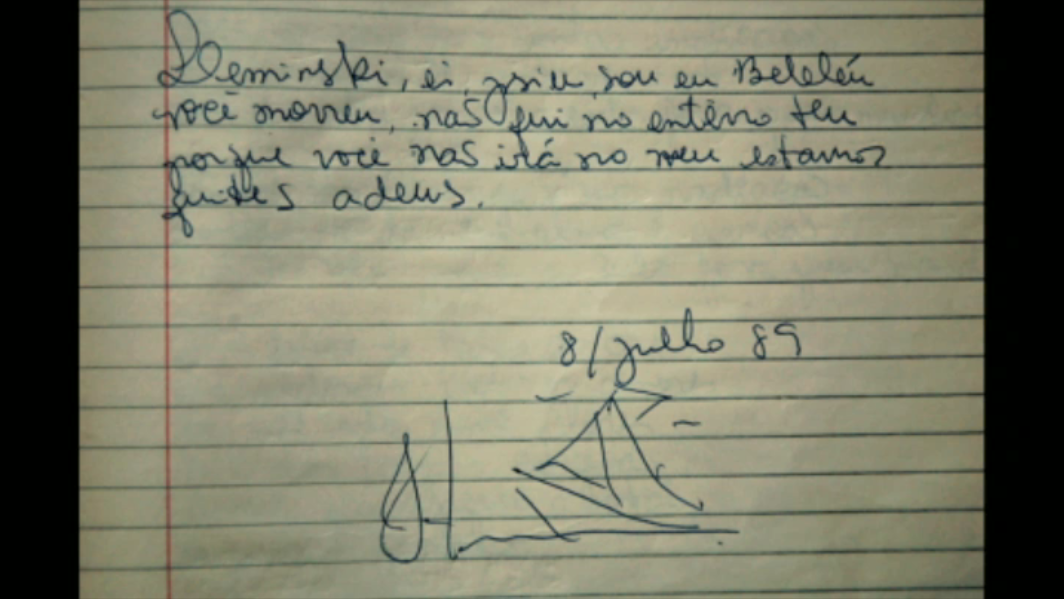 Leminski, ei, psiu, sou eu Beleléu
você morreu, nas fui no enterro teu
porque você nas irá no meu estamos
quites adeus.
8/julho 89